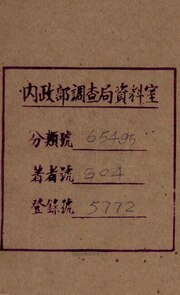 內政部調查局資料室
分類號 65495
著者號 304
登錄號 5972